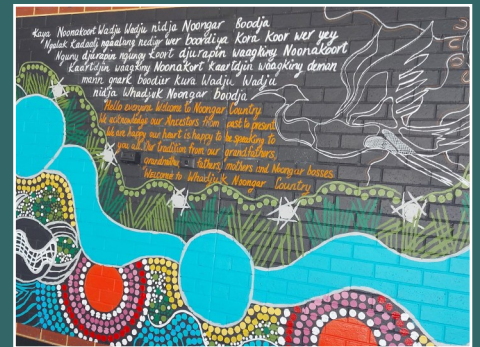 Kaya Noonakoort Wadju Wadju nidja Noongar Boodja
Ngalak Kadadj ngalang nedigr wer boordiya Kora Koor wer yey
Nguny djurapin ngungy Koot djurapin waagkiny Noonakoort
Kaartdjin waagkiny Noonakort Kaartdjin waagkiny deman
mann gnark boodier kura Wadju Wadju
nidja Whadjuk Noongar boodja
Hello everyone Welcome to Noongar Country
We acknowledge our Ancestors from past to present
We are happy our heart is happy to be speaking to
you all Our tradition from our grandfathers,
grandmothers, fathers, mothers and Noongar bosses
Welcome to Whadjuk Noongar Country